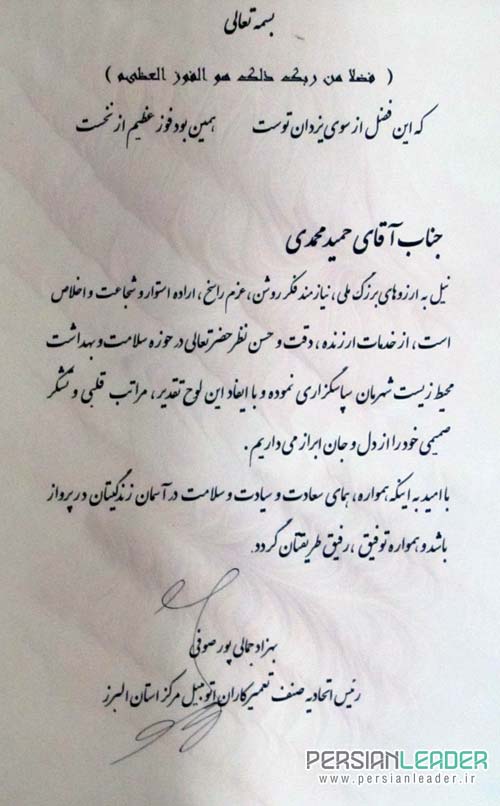 بسمه تعالی
( فضلا من ربک ذلک هو الفوز العظیم )
که این فضل از سوی یزدان توست همین بود فوز عظیم از نخست
جناب آقای حمید محمدی
نیل به ارزوهای بزرگ ملی، نیازمند فکر روشن، عزم راسخ، اراده استوار و شجاعت و اخلاص
است، از خدمات ارزنده، دقت و حسن نظر حضرتعالی در حوزه سلامت و بهداشت
محیط زیست شهرمان سپاسگزاری نموده و با ایفاد این لوح تقدیر، مراتب قلبی و تشکر
صمیمی خود را از دل و جان ابراز می داریم.
با امید به اینکه همواره، همای سعادت و سیادت و سلامت در آسمان زندگیتان در پرواز
باشد و همواره توفیق، رفیق طریقتان گردد.
بهزاد جمالی پور صوفی
رئیس اتحادیه صنف تعمیرکاران اتومبیل مرکز استان البرز
PERSIANLEADER
www.persianleader.ir